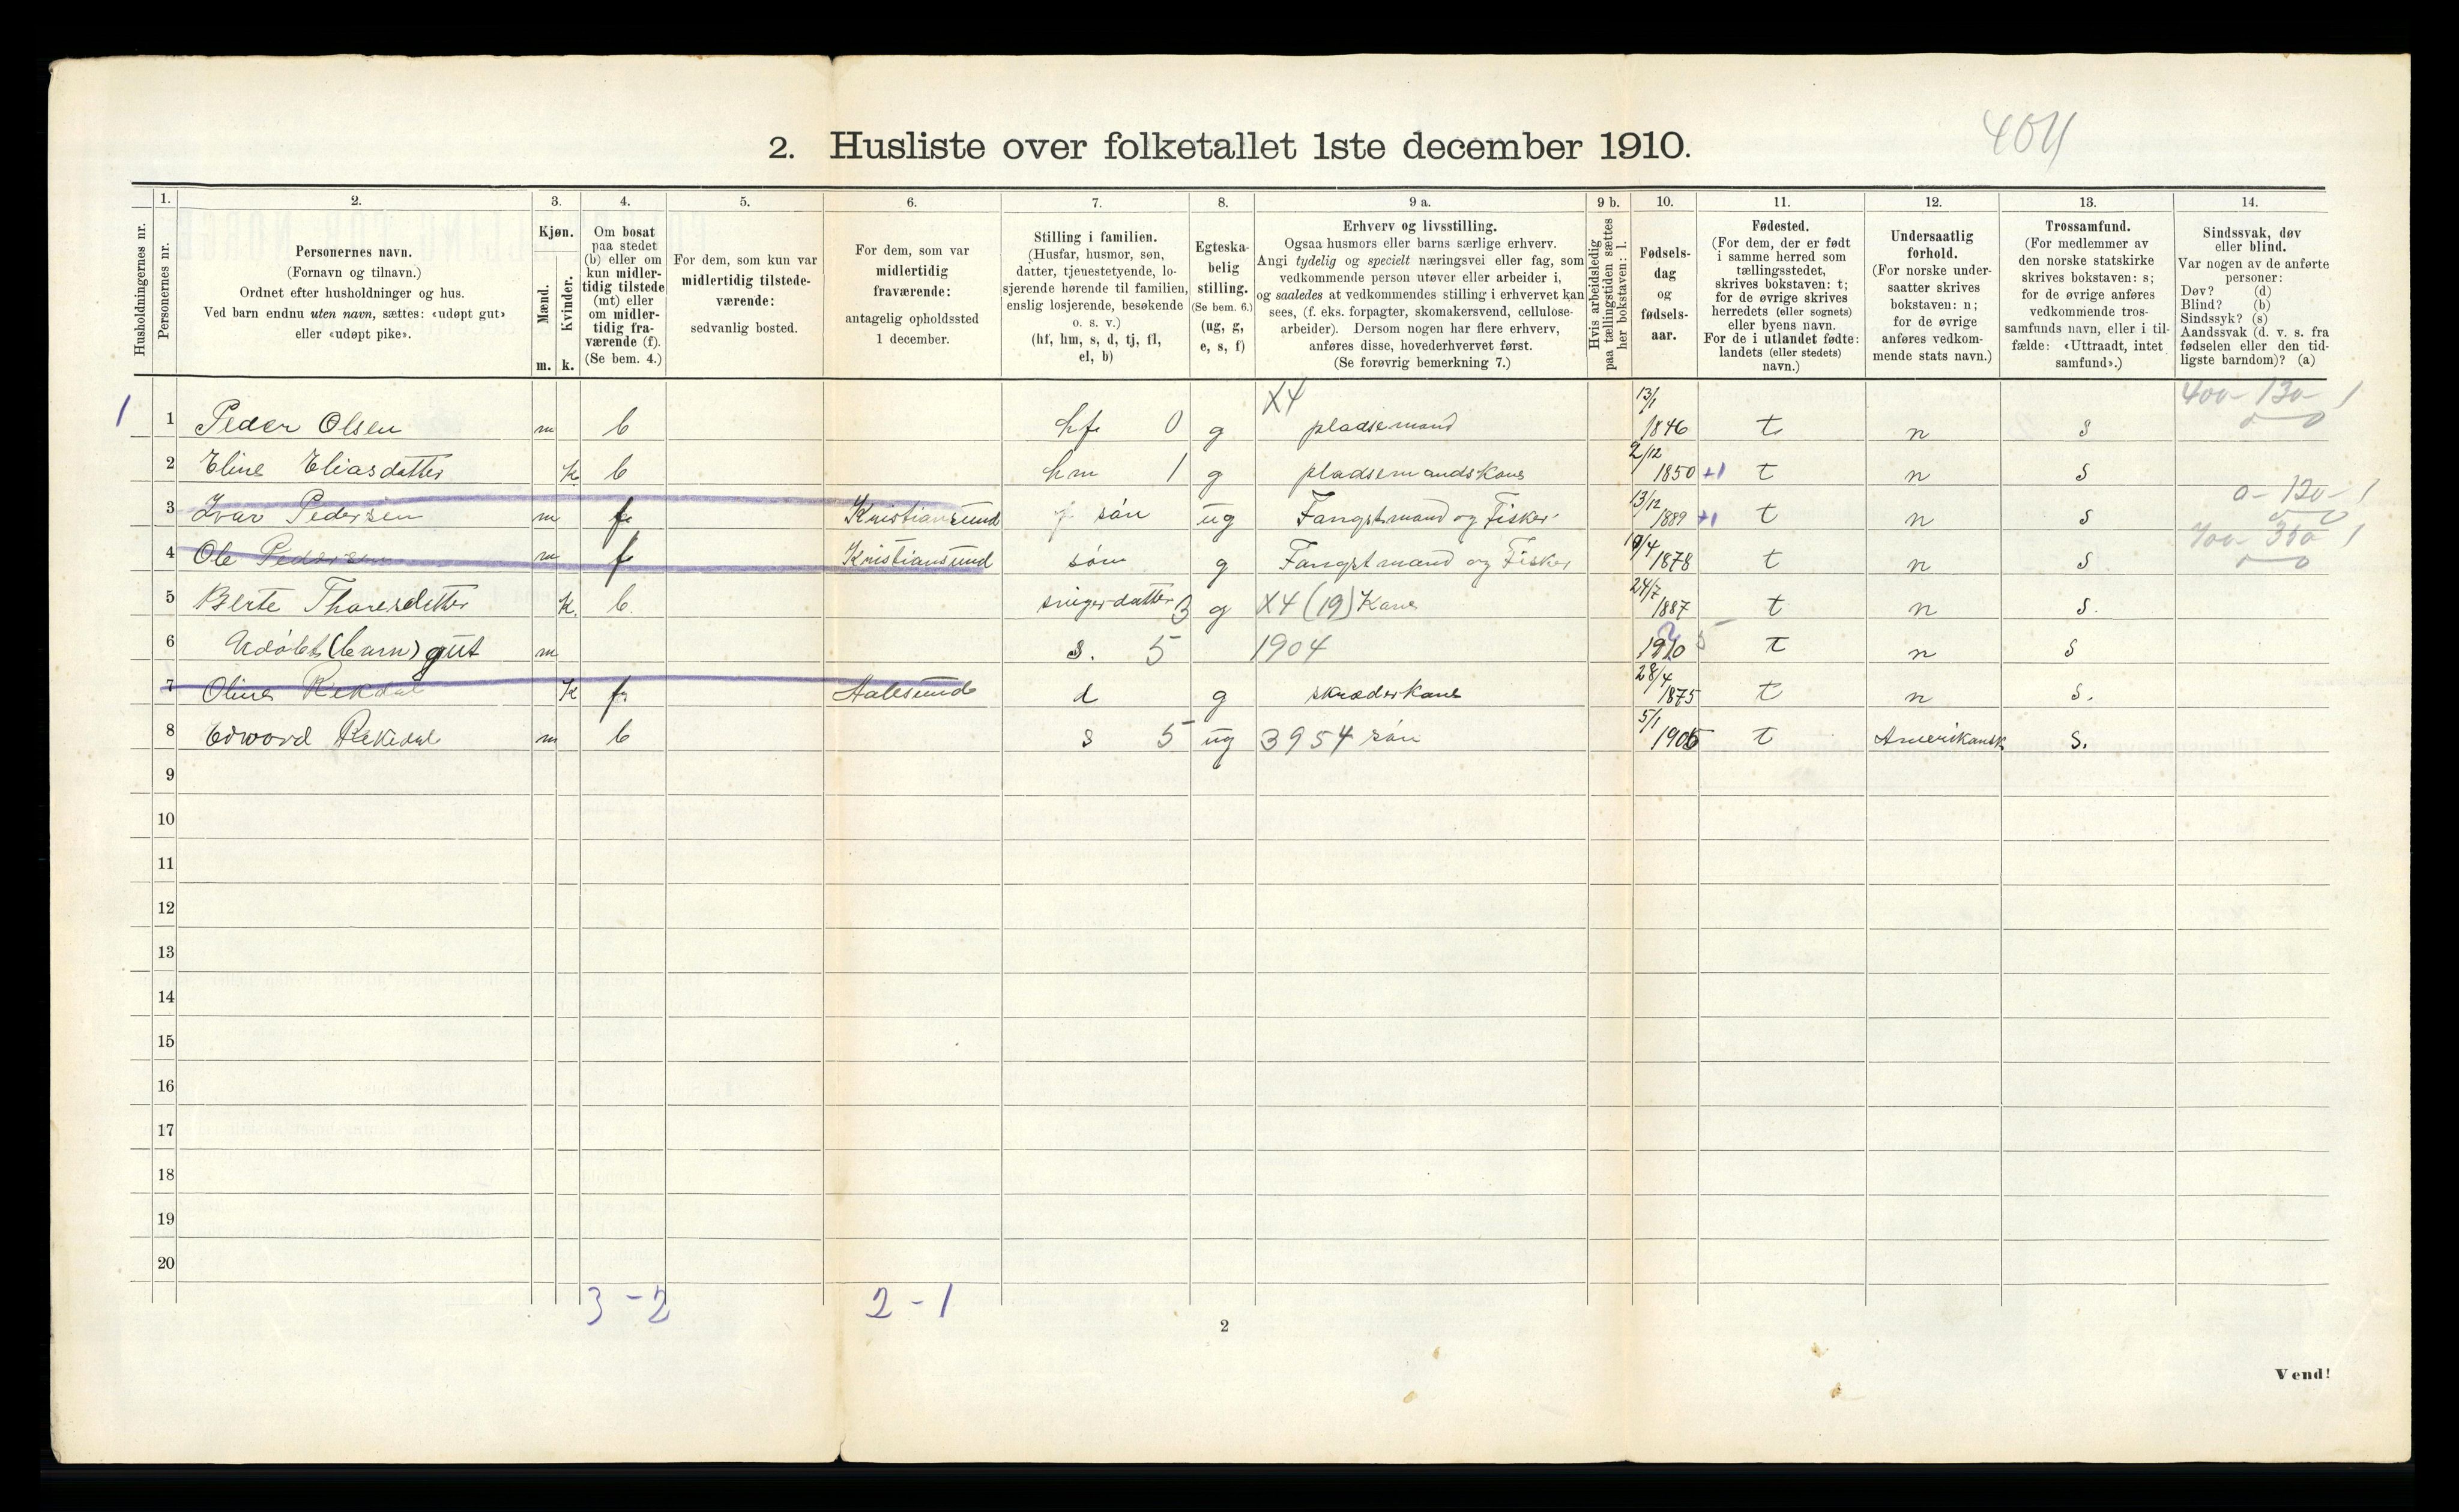 404
2. Husliste over folketallet 1ste december 1910.
Husholdningernes nr.
1. Personernes nr.
2. Personernes navn. (Fornavn og tilnavn.) Ordnet efter husholdninger og hus. Ved barn endnu uten navn, sættes: «udøpt gut» eller «udøpt pike».
3. Kjøn. Mænd. m. Kvinder. k.
4. Om bosat paa stedet (b) eller om kun midlertidig tilstede (mt) eller om midlertidig fraværende (f). (Se bem. 4.)
5. For dem, som kun var midlertidig tilstedeværende: sedvanlig bosted.
6. For dem, som var midlertidig fraværende: antagelig opholdssted 1 december.
7. Stilling i familien. (Husfar, husmor, søn, datter, tjenestetyende, losjerende hørende til familien, enslig losjerende, besøkende o. s. v.) (hf, hm, s, d, tj, fl, el, b)
8. Egteskabelig stilling. (Se bem. 6.) (ug, g, e, s, f)
9 a. Erhverv og livsstilling. Ogsaa husmors eller barns særlige erhverv. Angi tydelig og specielt næringsvei eller fag, som vedkommende person utøver eller arbeider i, og saaledes at vedkommendes stilling i erhvervet kan sees, (f. eks. forpagter, skomakersvend, cellulosearbeider). Dersom nogen har flere erhverv, anføres disse, hovederhvervet først. (Se forøvrig bemerkning 7.)
9 b. Hvis arbeidsledig paa tællingstiden sættes her bokstaven: l.
10. Fødselsdag og fødselsaar.
11. Fødested. (For dem, der er født i samme herred som tællingsstedet, skrives bokstaven: t; for de øvrige skrives herredets (eller sognets) eller byens navn. For de i utlandet fødte: landets (eller stedets) navn.)
12. Undersaatlig forhold. (For norske undersaatter skrives bokstaven: n; for de øvrige anføres vedkommende stats navn.)
13. Trossamfund. (For medlemmer av den norske statskirke skrives bokstaven: s; for de øvrige anføres vedkommende trossamfunds navn, eller i tilfælde: «Uttraadt, intet samfund».)
14. Sindssvak, døv eller blind. Var nogen av de anførte personer: Døv? (d) Blind? (b) Sindssyk? (s) Aandssvak (d. v. s. fra fødselen eller den tidligste barndom)? (a)
1 1 Peder Olsen m b hf 0 g X4 pladsemand 13/1 1846 t n s 400 - 130 - 1
2 Eline Eliasdatter k b hm 1 g pladsemandskone 2/12 1850 +1 t n s
3 Ivar Pedersen m f Kristiansund søn ug Fangstmand og Fisker 13/12 1889 +1 t n s 0 - 120 - 1
4 Ole Pedersen m f Kristiansund søn g Fangstmand og Fisker 10/4 1878 t n s 400 - 350 1
5 Berte Thoresdatter k. b. svigerdatter 3 g X4 (19) Kone 24/7 1887 t n s.
6 Udøbt (barn) gut m s. 5 1904 1910 t n s
7 Oline Rekdal k f Aalesund d g skræderkone 28/4 1875 t n s.
8 Edward Rekedal m b s 5 ug 3954 søn 5/1 1905 t Amerikansk s.
9
10
11
12
13
14
15
16
17
18
19
20
3 - 2 2 - 1
2
Vend!